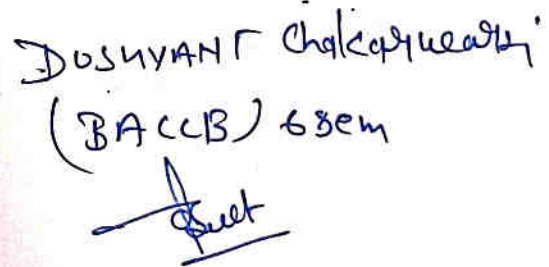 DUSHYANT Chakarwarty
(BACCB) 6 sem